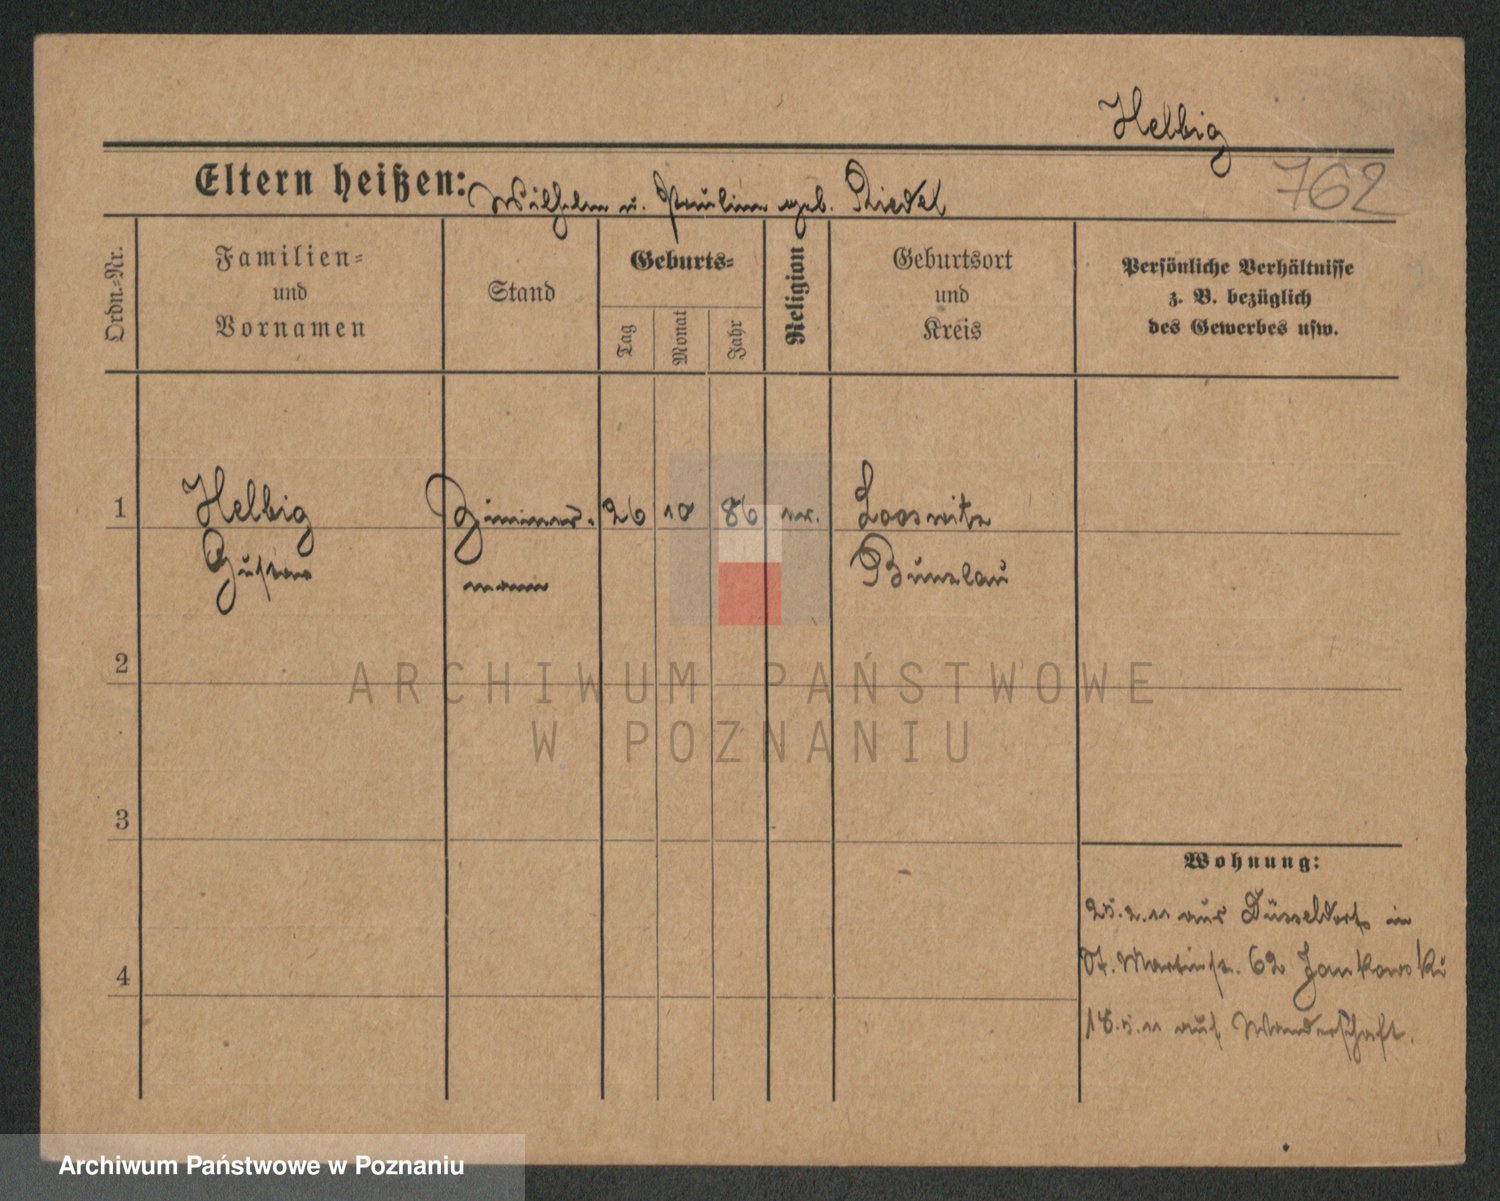 Helbig
762
Eltern heißen: Wilhelm u. Pauline geb. Riedel
Ordn.-Nr.
Familien-
und
Vornamen
Stand
Geburts-
Tag
Monat
Jahr
Religion
Geburtsort
und
Kreis
Persönliche Verhältnisse
z. B. bezüglich
des Gewerbes usw.
1
Helbig
Gustav
Zimmer-
mann
26
10
86
ev.
Looswitz
Bunzlau
2
ARCHIWUM PAŃSTWOWE
W POZNANIU
3
Wohnung:
25.2.11 aus Düsseldorf in
St. Martinstr. 62 Jankowski
4
18.5.11 auf Wanderschaft.
Archiwum Państwowe w Poznaniu